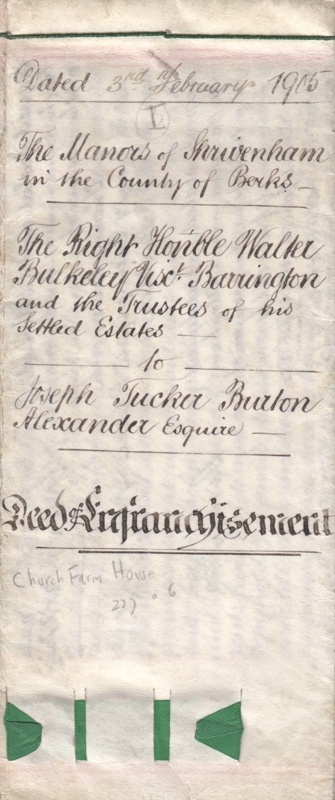 Dated 3rd February 1905
I
The Manors of Shrivenham
in the County of Berks
The Right Honble Walter
Bulkeley Visct. Barrington
and the Trustees of his
Settled Estates
to
Joseph Tucker Burton
Alexander Esquire
Deed of Enfranchisement
Church Farm House
227 . 6